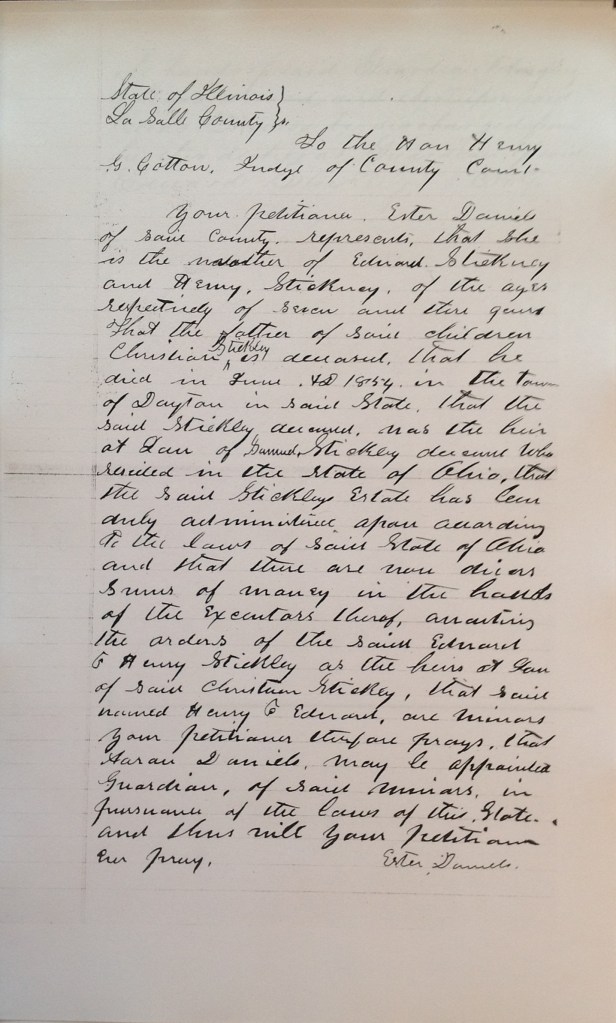 State of Illinois }
La Salle County } ss.
To the Hon Henry
G. Cotton, Judge of County Court-
Your petitioner. Ester Daniels
of said County. represents, that she
is the mother of Edward. Stickney
and Henry, Stickney, of the ages
respectively of seven and three years
That the father of said children
Christian Stickley is deceased, that he
died in June AD 1854. in the town
of Dayton in said State. that the
said Stickley deceased, was the heir
at Law of Samuel Stickley deceased who
resided in the State of Ohio, that
the said Stickleys Estate has been
duly administered apon according
to the laws of said State of Ohio
and that there are now divers
sums of money in the hands
of the Executors therof, awaiting
the orders of the said Edward
& Henry Stickley as the heirs at Law
of said Christian Stickley, that said
named Henry & Edward, are minors
your petitioner therfore prays, that
Aaran Daniels, may be appointed
Guardian, of said minors, in
pursuance of the laws of this State.
and thus will your petitioner
ever pray. Ester Daniels.